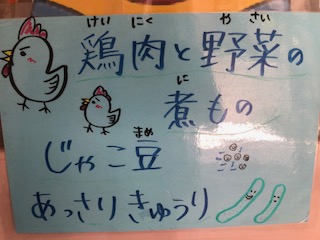 けい にく や さい
鶏肉と野菜の
に
煮もの
まめ
じゃこ豆
あっさりきゅうり